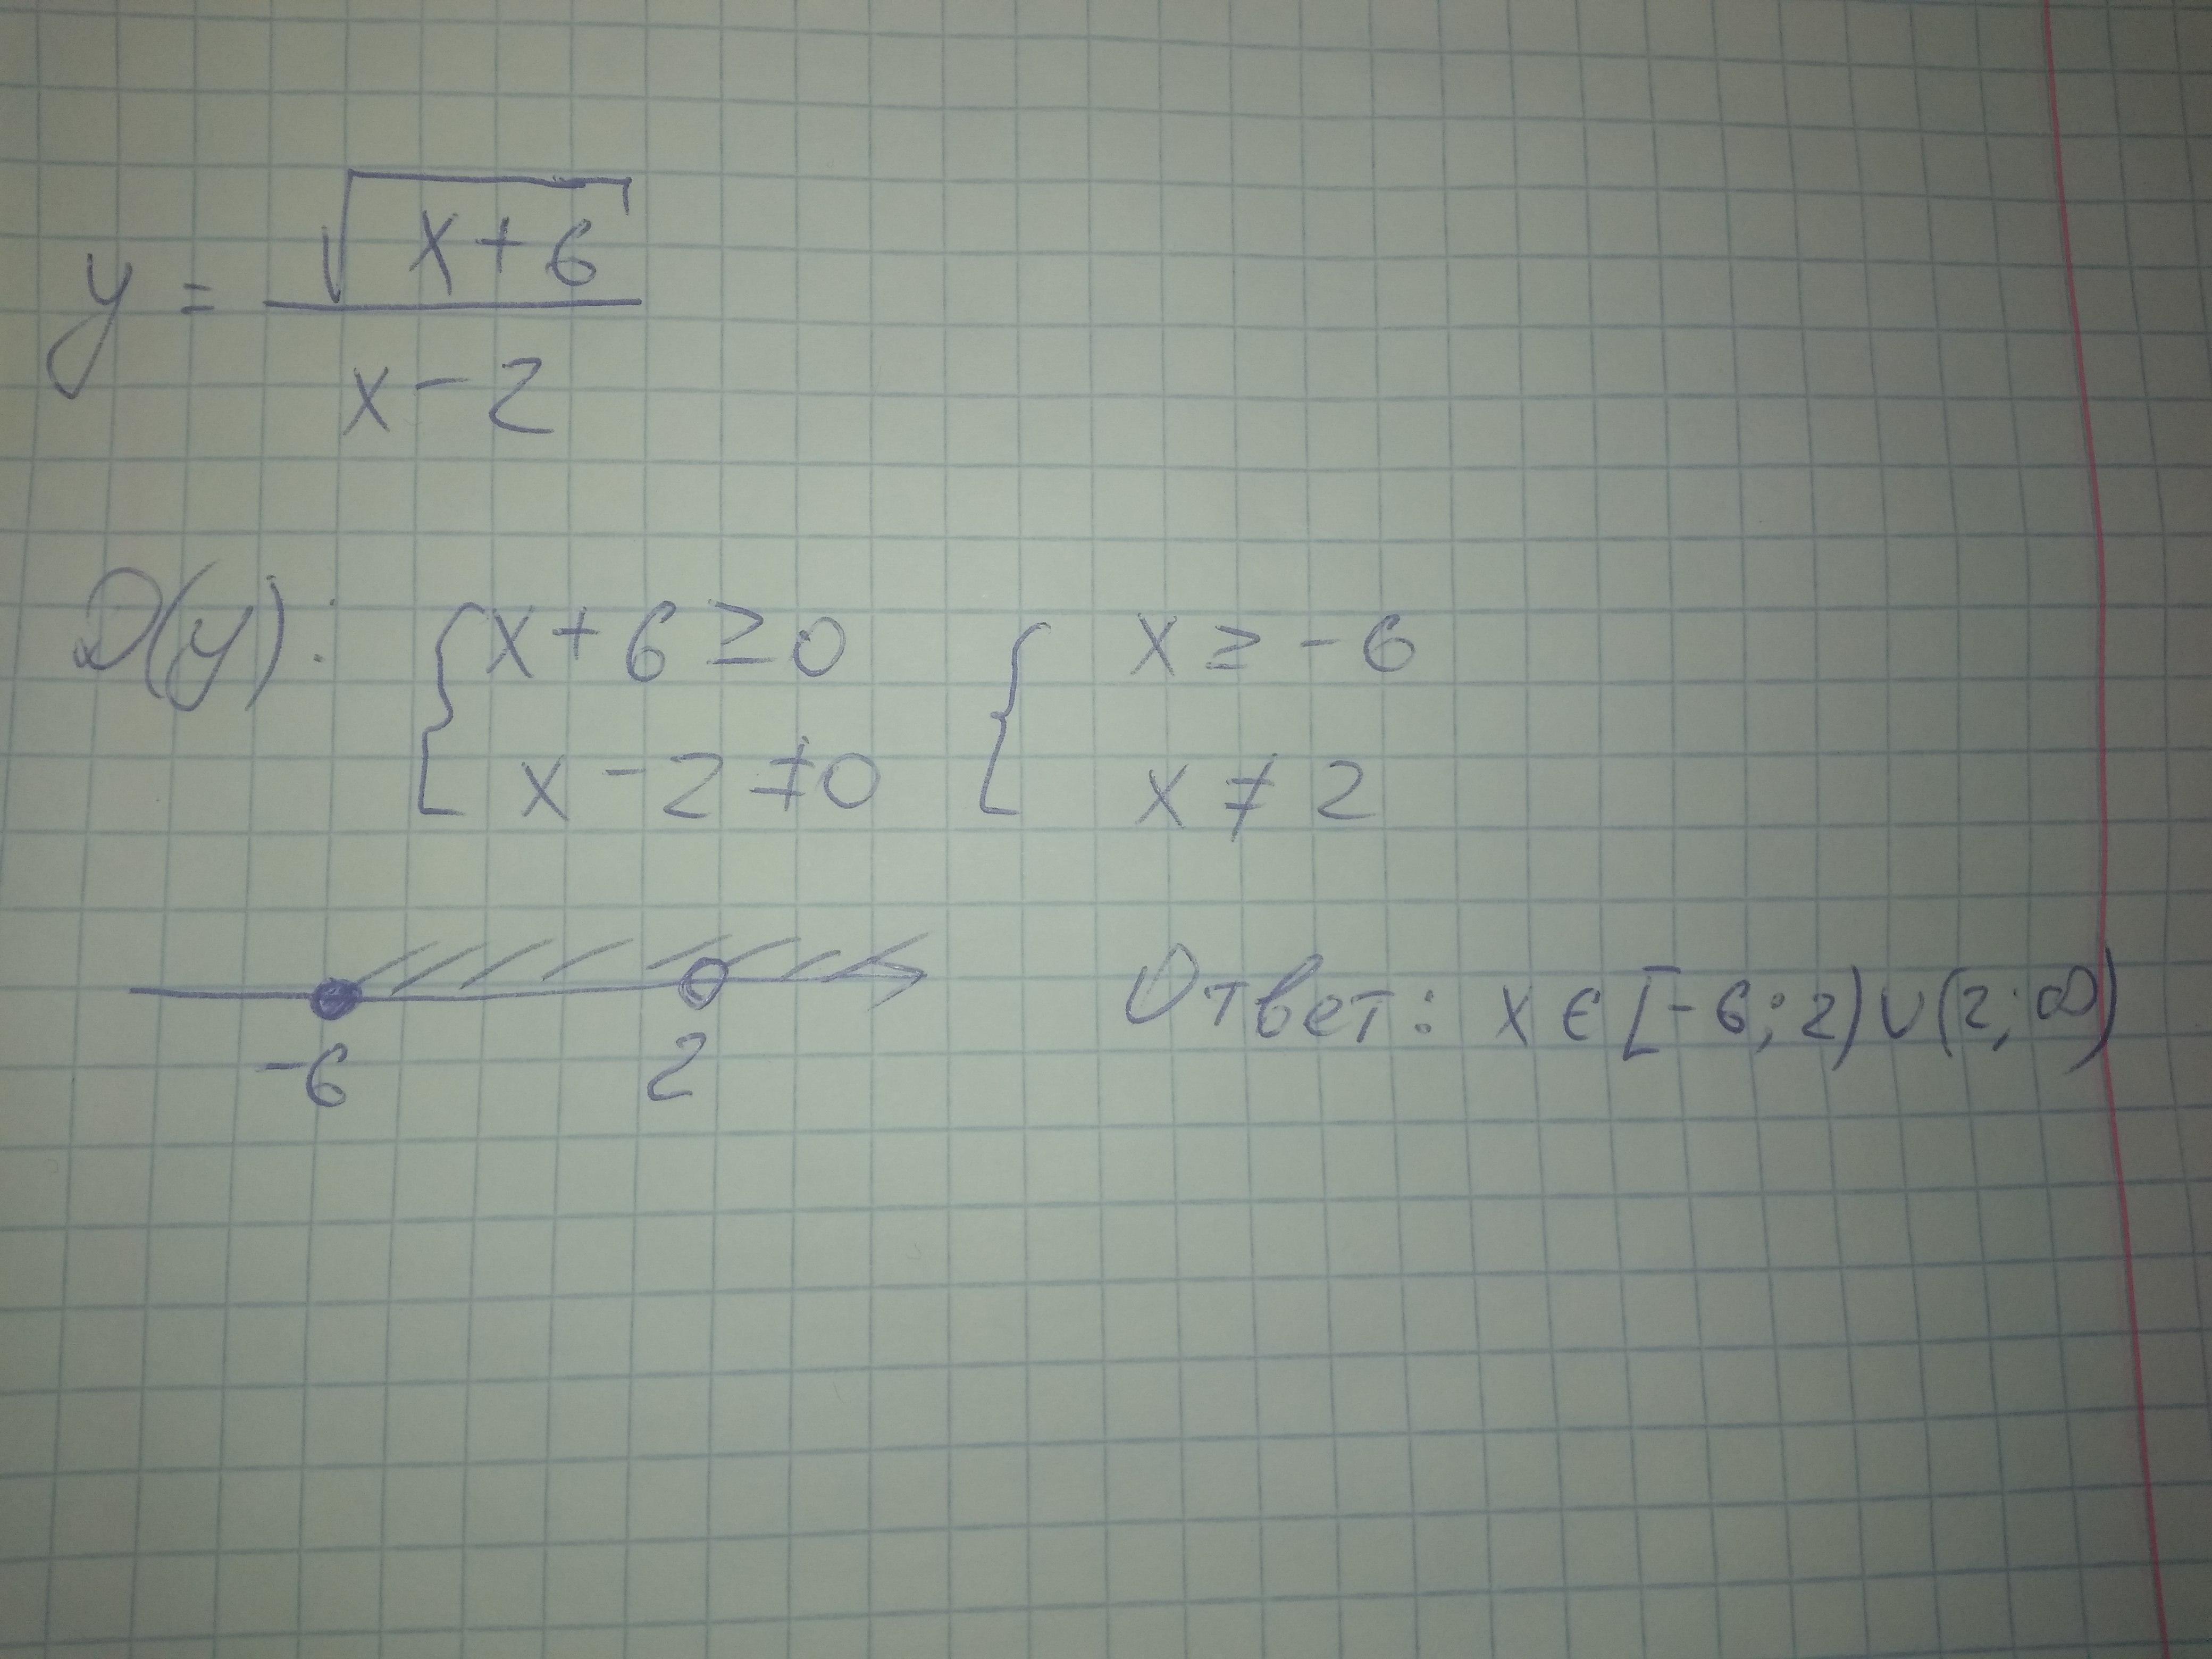 y = √(x+6) / (x-2)
D(y): { x+6 ≥ 0 { x ≥ -6
x-2 ≠ 0 x ≠ 2
-6 2 Ответ: x ∈ [-6; 2) ∪ (2; ∞)